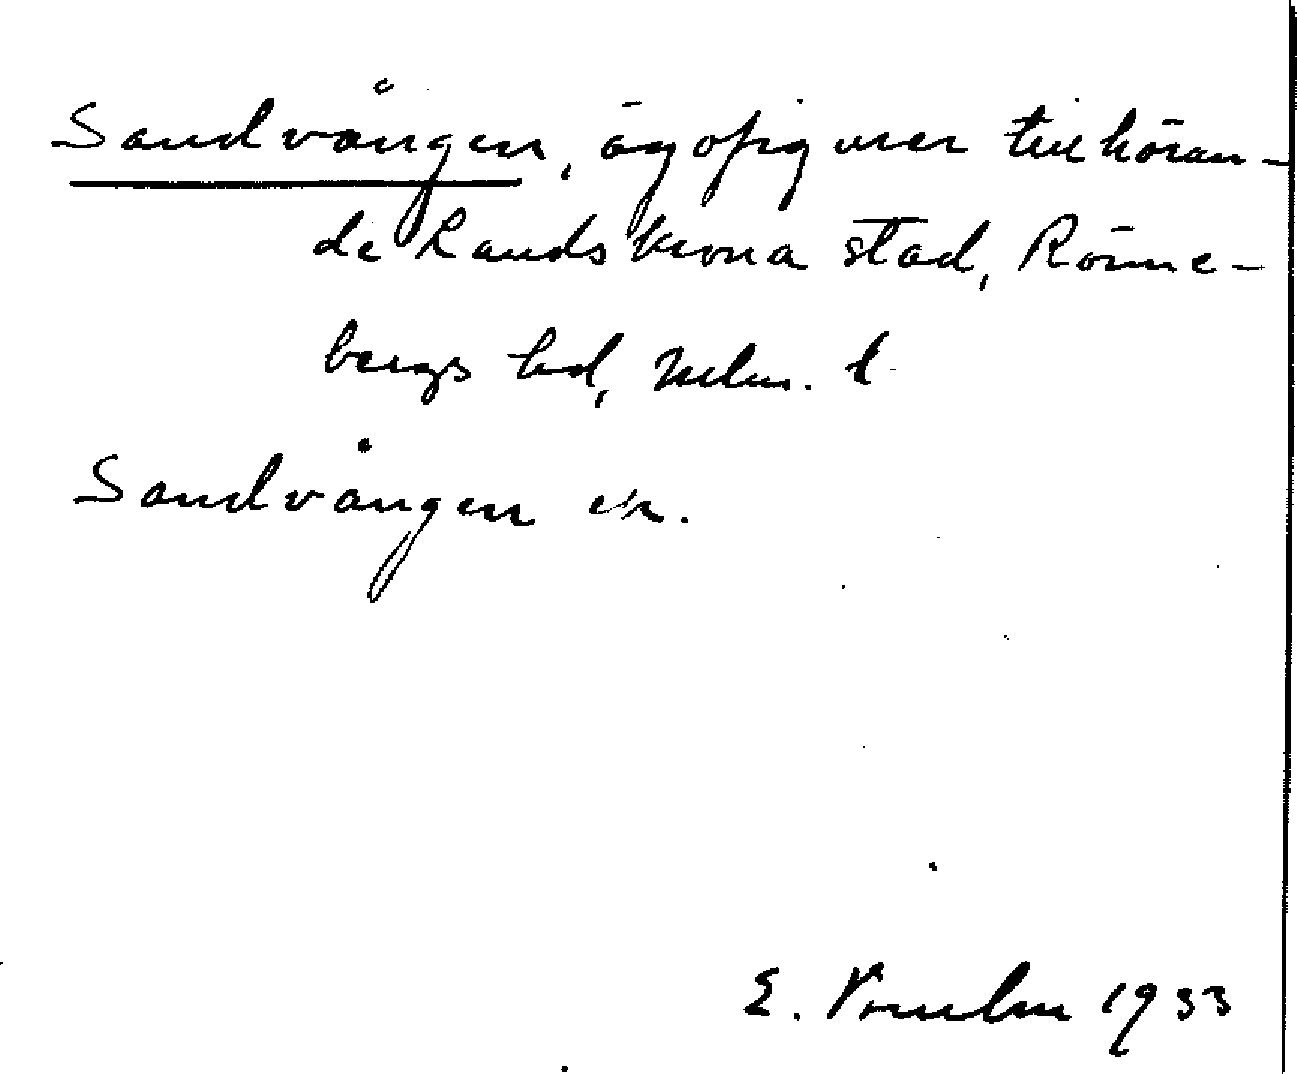 Sandvången, ägofigurer tillhöran-
de Landskrona stad, Rönne-
bergs hd, Mlm. l
Sandvången ek.
E. 1933